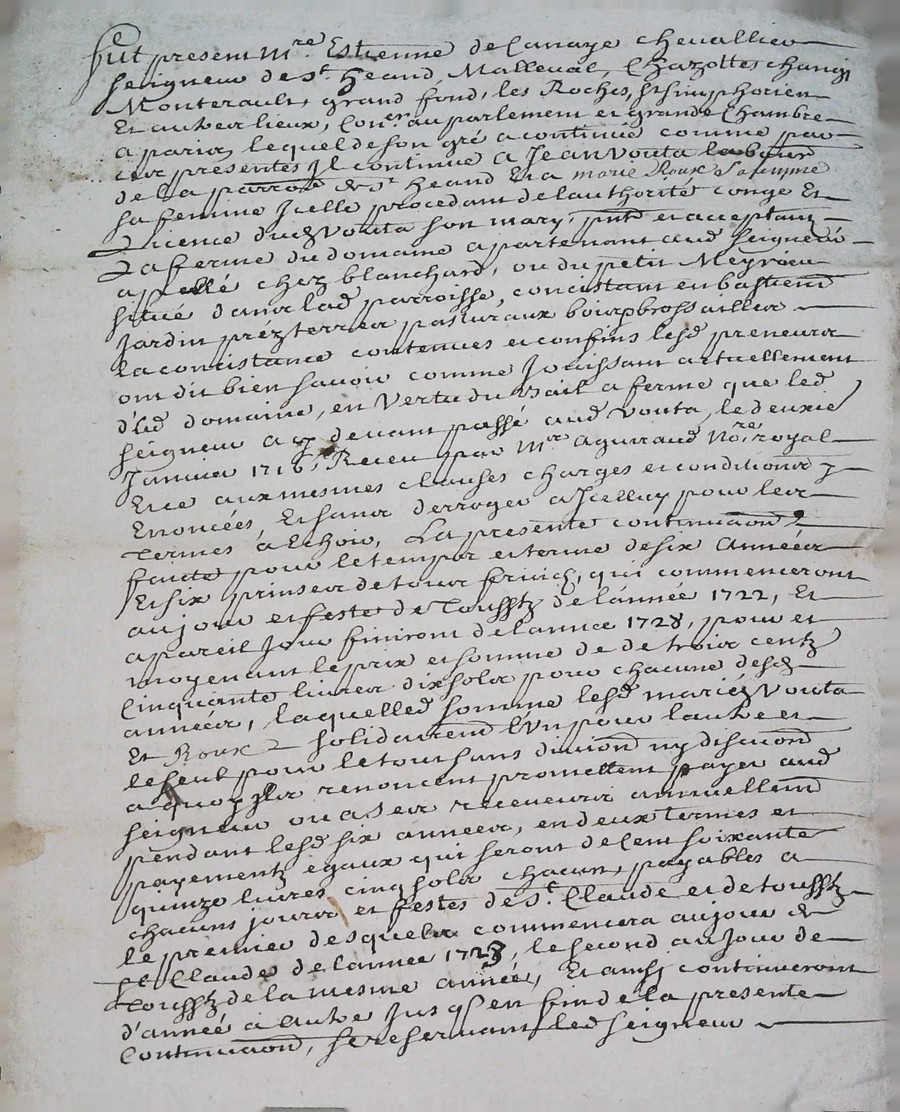 Fut present Mre Estienne de lanaye chevallier
seigneur de st heand, Malleval, Chazottes changi
Monterault, grand fond, les Roches, st simphorien
Et autres lieux, Coner au parlement et grande Chambre
a paris, lequel de son gré a continué comme par
ces presentes Il continue a Jean Vouta laboureur
de la parroisse de st heand Et a marie Roux
sa femme Icelle procedant de lauthorité congé Et
Licence dud Vouta son mary, pnts et acceptans
La ferme du domaine apartenant aud seigneur
apellé chez blanchard, ou du petit Meyrieu
situé dans lad parroisse, concistant en bastiment
Jardin prez terres pasturaux bois brossailles
la concistance contenues et confins lesd preneurs
ont dit bien savoir comme Jouissant actuellement
d'led domaine, en Vertu du bail a ferme que led
seigneur a cy devant passé aud Vouta, le deuxie
Janvier 1716, Receu par Mre agniraud Nore royal
Et ce aux mesmes clauses charges et conditions y
Enoncées, Et sans derroger a Icelluy pour les
termes à Echoir, La presente continuaon
faicte pour le temps et terme de six Années
Et six prinses de tous fruicts, qui commenceront
au jour et feste de Toussts de l'année 1722, Et
a pareil Jour finiront de lannée 1728, pour et
moyenant le prix et somme de de trois cents
Cinquante livres dix sols pour chacune desd
années, laquelle d somme lesd mariés Vouta
Et Roux solidairemt l'Un pour lautre et
le seul pour le tout sans divison ny discuon
a quoy Ils renoncent promettent payer aud
seigneur ou a ses receveurs annuellemt
pendant lesd six années, en deux termes et
payements egaux qui seront de Cent soixante
quinze livres cinq sols chacun, payables a
chacuns jours et festes de st. Claude et de Toussts
le premier desquels commencera au jour de
st Claude de lannee 1723, le second au Jour de
Toussts de la mesme année, Et ainsi continueront
d'année à autre Jusqs en fin de la presente
Continuaon, se reservant led seigneur